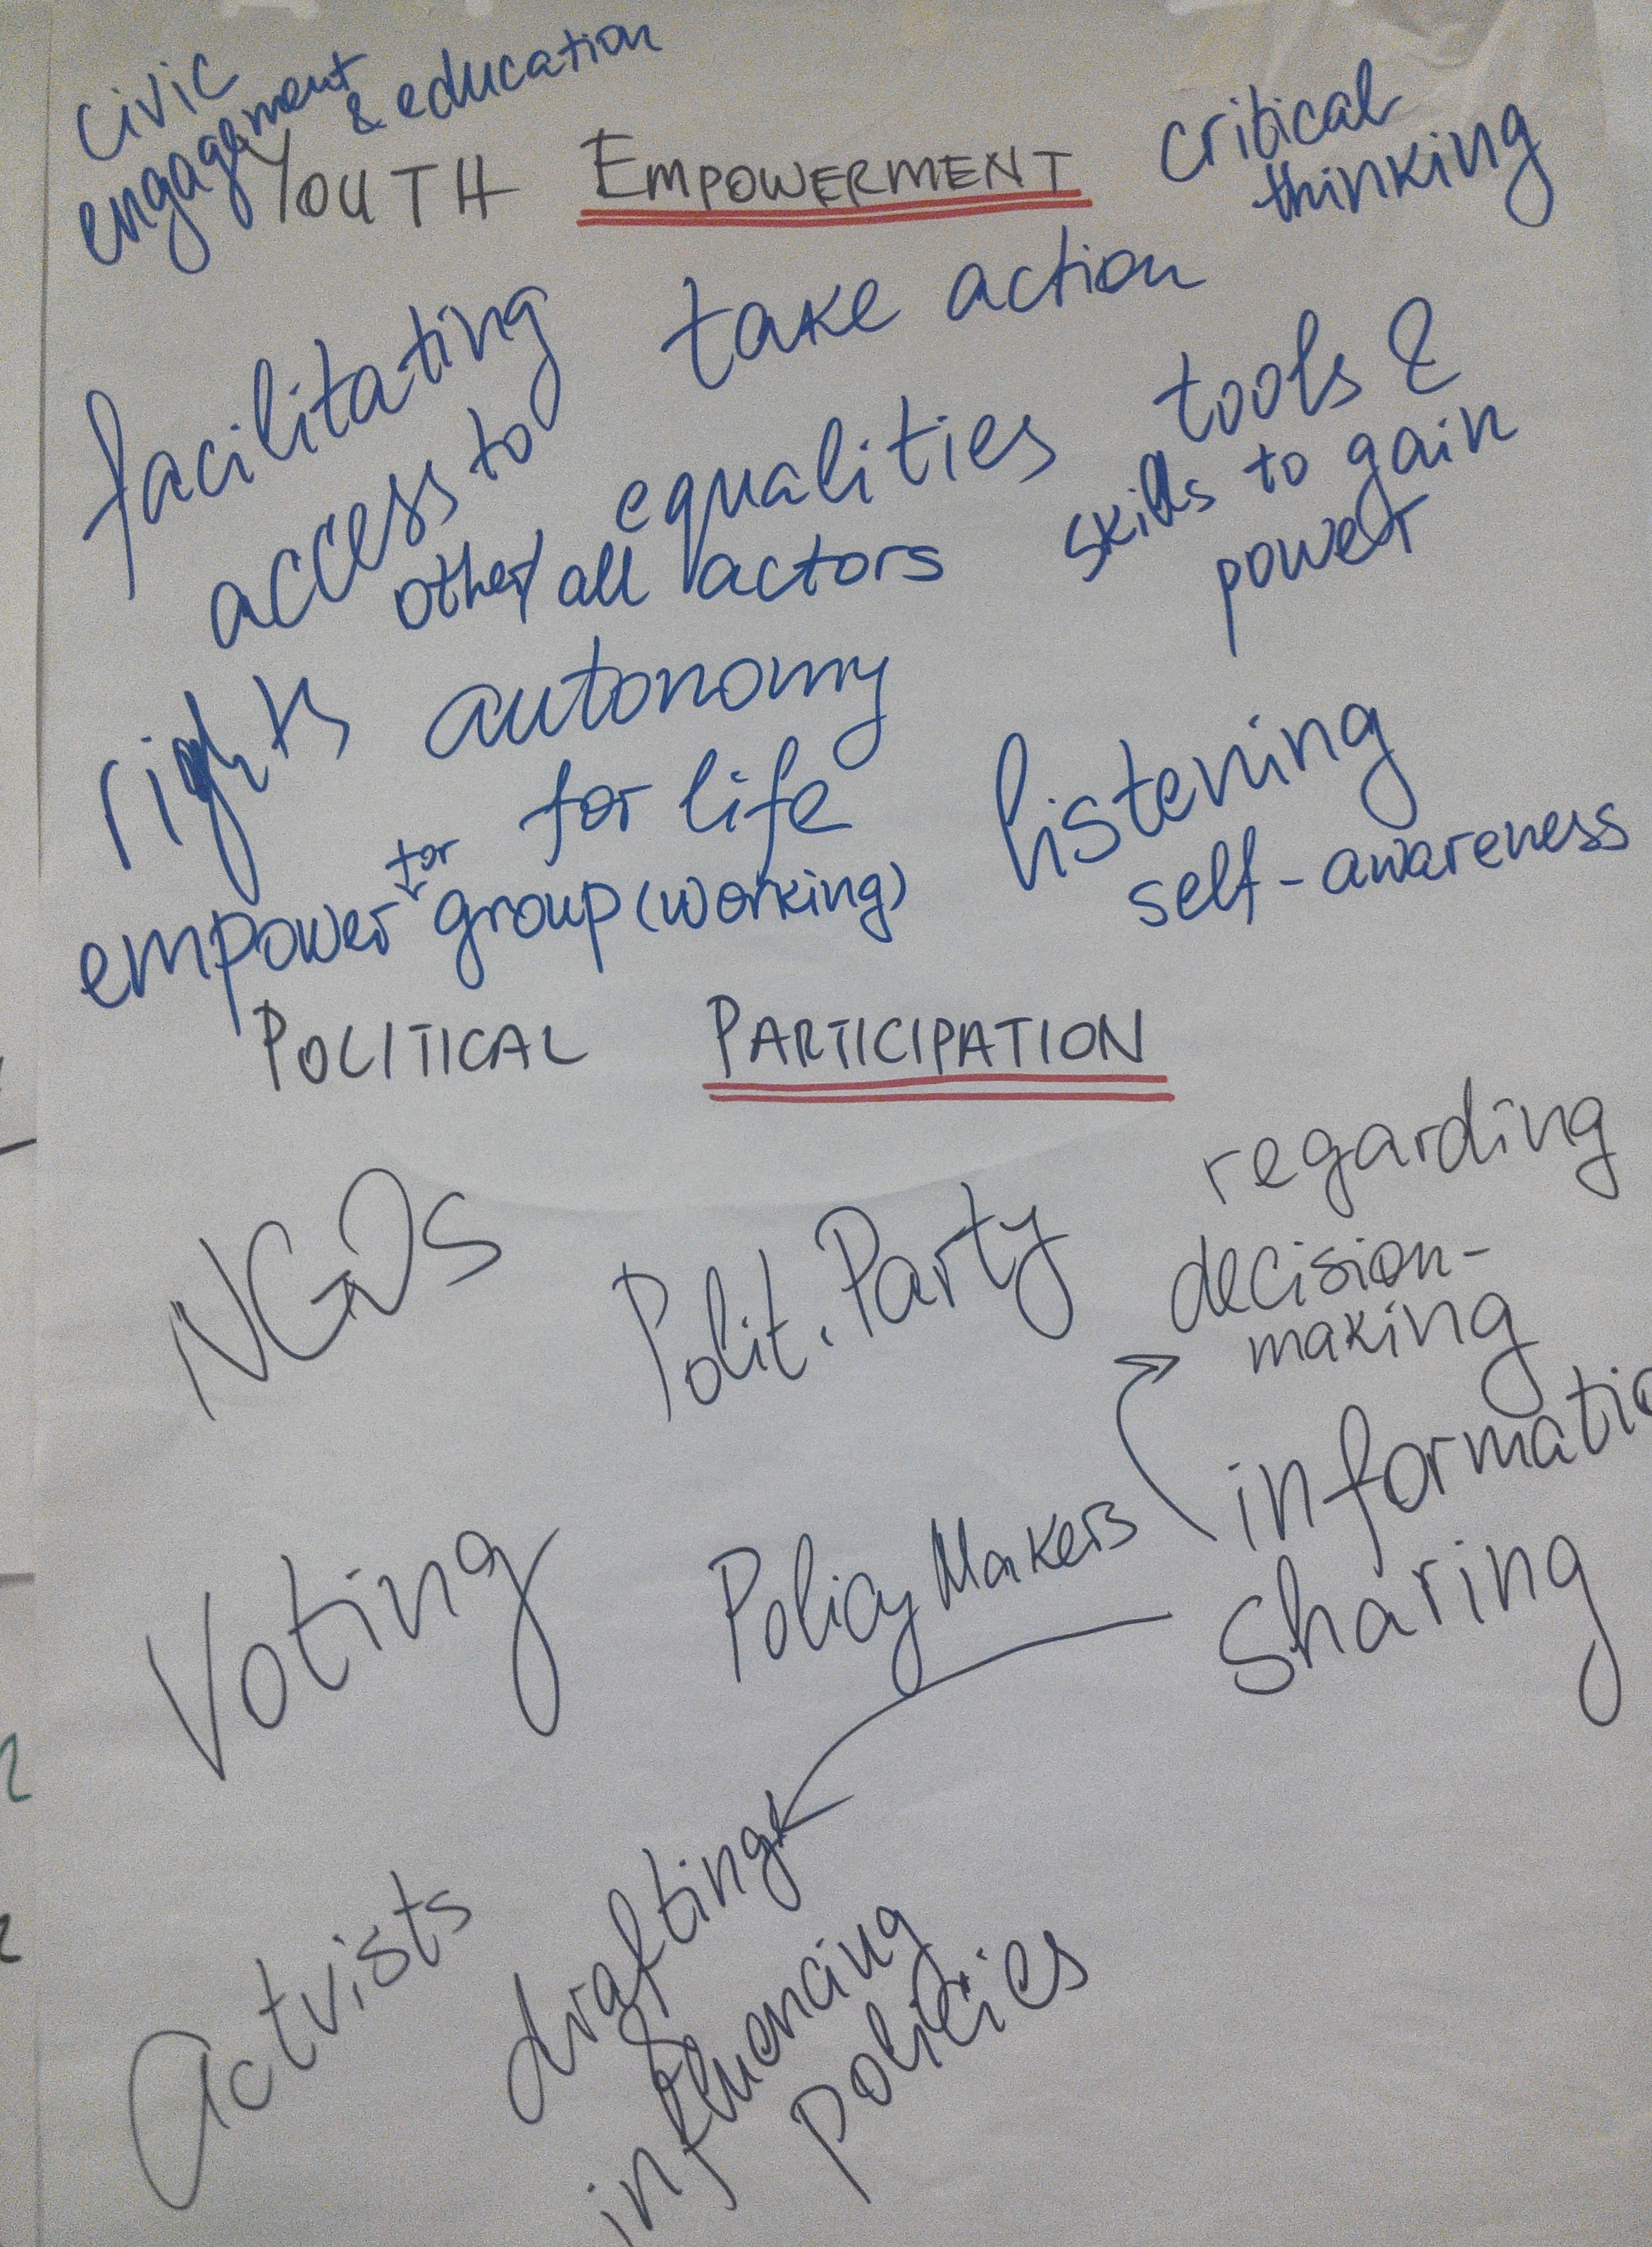 civic
engagement & education
YOUTH EMPOWERMENT
critical
thinking
facilitating
access to
rights
take action
equalities
other/all actors
tools &
skills to gain
power
autonomy
for life
listening
self-awareness
for
empower group (working)
POLITICAL PARTICIPATION
NGOs
Polit. Party
regarding
decision-
making
Voting
Policy Makers
informatio
sharing
Actvists
drafting
&
influencing
policies